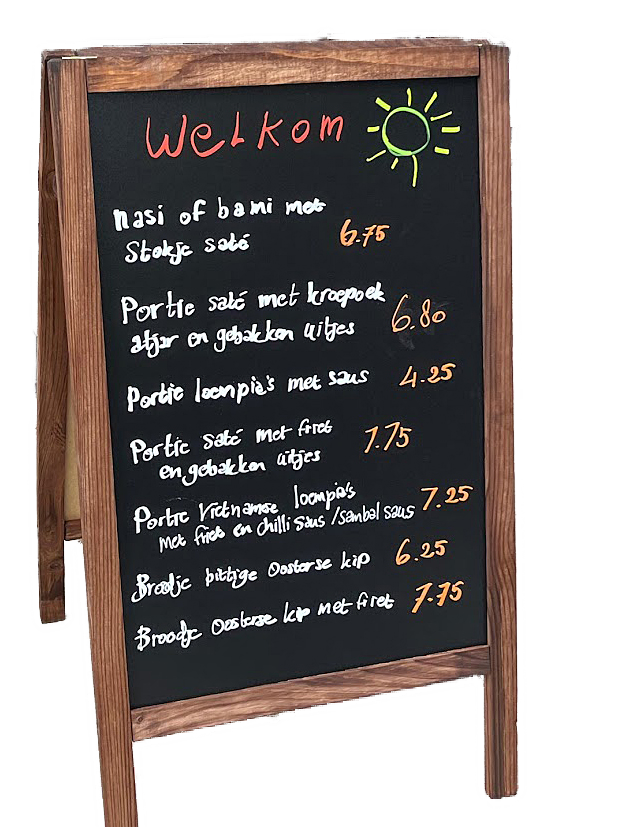 Welkom
nasi of bami met
Stokje saté 6.75
Portie saté met kroepoek
atjar en gebakken uitjes 6.80
Portie loempia's met saus 4.25
Portie saté met friet
en gebakken uitjes 7.75
Portie Vietnamse loempia's 7.25
met friet en chilli saus / sambal saus
Broodje pittige Oosterse kip 6.25
Broodje Oosterse kip met friet 7.75